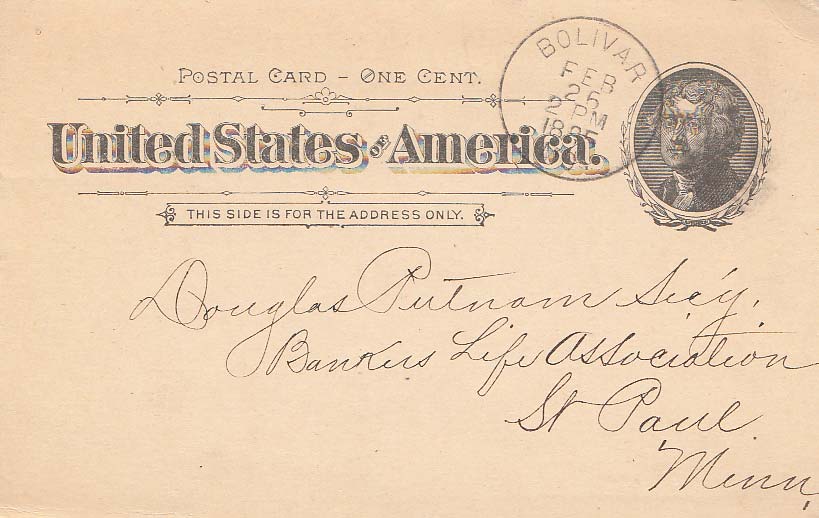 POSTAL CARD - ONE CENT.
United States OF America.
THIS SIDE IS FOR THE ADDRESS ONLY.
BOLIVAR
FEB
25
2 PM
Douglas Putnam Sec'y,
Bankers Life Association
St Paul
Minn,